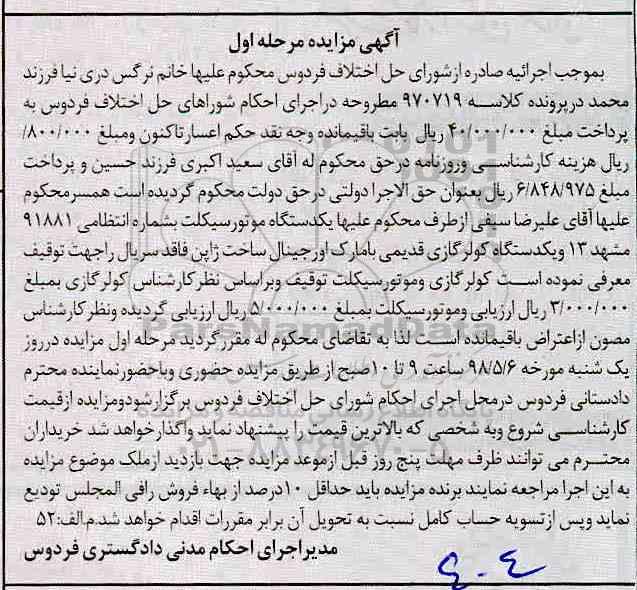 آگهی مزایده مرحله اول
بموجب اجرائیه صادره از شورای حل اختلاف فردوس محکوم علیها خانم نرگس دری نیا فرزند
محمد درپرونده کلاسه ۹۷۰۷۱۹ مطروحه دراجرای احکام شوراهای حل اختلاف فردوس به
پرداخت مبلغ ۴۰/۰۰۰/۰۰۰ ریال بابت باقیمانده وجه نقد حکم اعسارتاکنون ومبلغ ۸۰۰/۰۰۰/
ریال هزینه کارشناسی وروزنامه درحق محکوم له آقای سعید اکبری فرزند حسین و پرداخت
مبلغ ۶/۸۴۸/۹۷۵ ریال بعنوان حق الاجرا دولتی درحق دولت محکوم گردیده است همسرمحکوم
علیها آقای علیرضا سیفی ازطرف محکوم علیها یکدستگاه موتورسیکلت بشماره انتظامی ۹۱۸۸۱
مشهد ۱۳ ویکدستگاه کولرگازی قدیمی بامارک اورجینال ساخت ژاپن فاقد سریال راجهت توقیف
معرفی نموده است کولرگازی وموتورسیکلت توقیف وبراساس نظرکارشناس کولرگازی بمبلغ
۳/۰۰۰/۰۰۰ ریال ارزیابی وموتورسیکلت بمبلغ ۵/۰۰۰/۰۰۰ ریال ارزیابی گردیده ونظرکارشناس
مصون ازاعتراض باقیمانده است لذا به تقاضای محکوم له مقررگردید مرحله اول مزایده درروز
یک شنبه مورخه ۹۸/۵/۶ ساعت ۹ تا ۱۰صبح از طریق مزایده حضوری وباحضورنماینده محترم
دادستانی فردوس درمحل اجرای احکام شورای حل اختلاف فردوس برگزارشودومزایده ازقیمت
کارشناسی شروع وبه شخصی که بالاترین قیمت را پیشنهاد نماید واگذارخواهد شد خریداران
محترم می توانند ظرف مهلت پنج روز قبل ازموعد مزایده جهت بازدید ازملک موضوع مزایده
به این اجرا مراجعه نمایند برنده مزایده باید حداقل ۱۰درصد از بهاء فروش رافی المجلس تودیع
نماید وپس ازتسویه حساب کامل نسبت به تحویل آن برابر مقررات اقدام خواهد شد.م.الف:۵۲
مدیراجرای احکام مدنی دادگستری فردوس
ParsNamadData